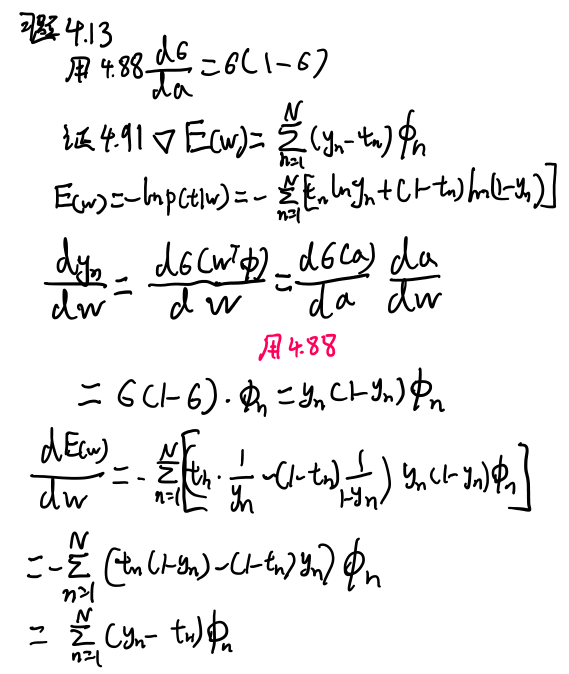 习题 4.13
用 4.88 dσ/da = σ(1-σ)
证 4.91 ∇E(w) = ∑_{n=1}^{N} (y_n - t_n) φ_n
E(w) = -ln p(t|w) = - ∑_{n=1}^{N} [t_n ln y_n + (1-t_n) ln(1-y_n)]
dy_n/dw = dσ(w^Tφ)/dw = dσ(a)/da da/dw
用 4.88
= σ(1-σ) · φ_n = y_n(1-y_n) φ_n
dE(w)/dw = - ∑_{n=1}^{N} [(t_n · 1/y_n - (1-t_n) 1/(1-y_n)) y_n(1-y_n) φ_n]
= - ∑_{n=1}^{N} (t_n(1-y_n) - (1-t_n) y_n) φ_n
= ∑_{n=1}^{N} (y_n - t_n) φ_n